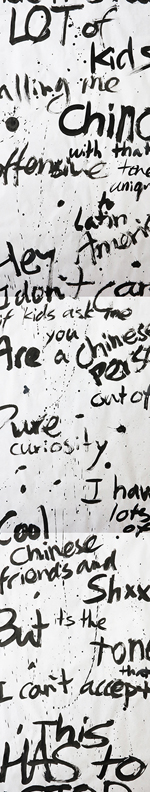 LOT of
kids
alling me
Chino
with that
offensive tone
uniqu
to
Latin
Ameri
Hey
I don't car
if kids ask me
you
Are a Chinese
pers
out of
Pure
curiosity
I hav
lots
of
Cool
Chinese
friends and
Shxx
But it's the
tone
that
I can't accept
This
HAS to